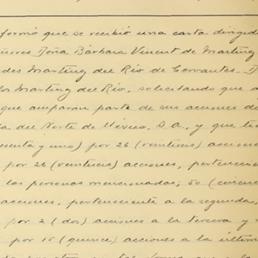 formó que se recibió una carta dirigid
ñores Doña Bárbara Vincent de Martínez
des Martínez del Río de Cervantes. D
lo Martínez del Río, solicitando que a
que amparan parte de sus acciones de
ía del Norte de México, S.A., y que tie
enta y uno) por 26 (veintiseis) accion
por 26 (veintiseis) acciones, pertenecien
las personas mencionadas; 50 (cincuen
acciones, perteneciente a la segunda,
por 2 (dos) acciones a la tercera y
por 15 (quince) acciones a la última